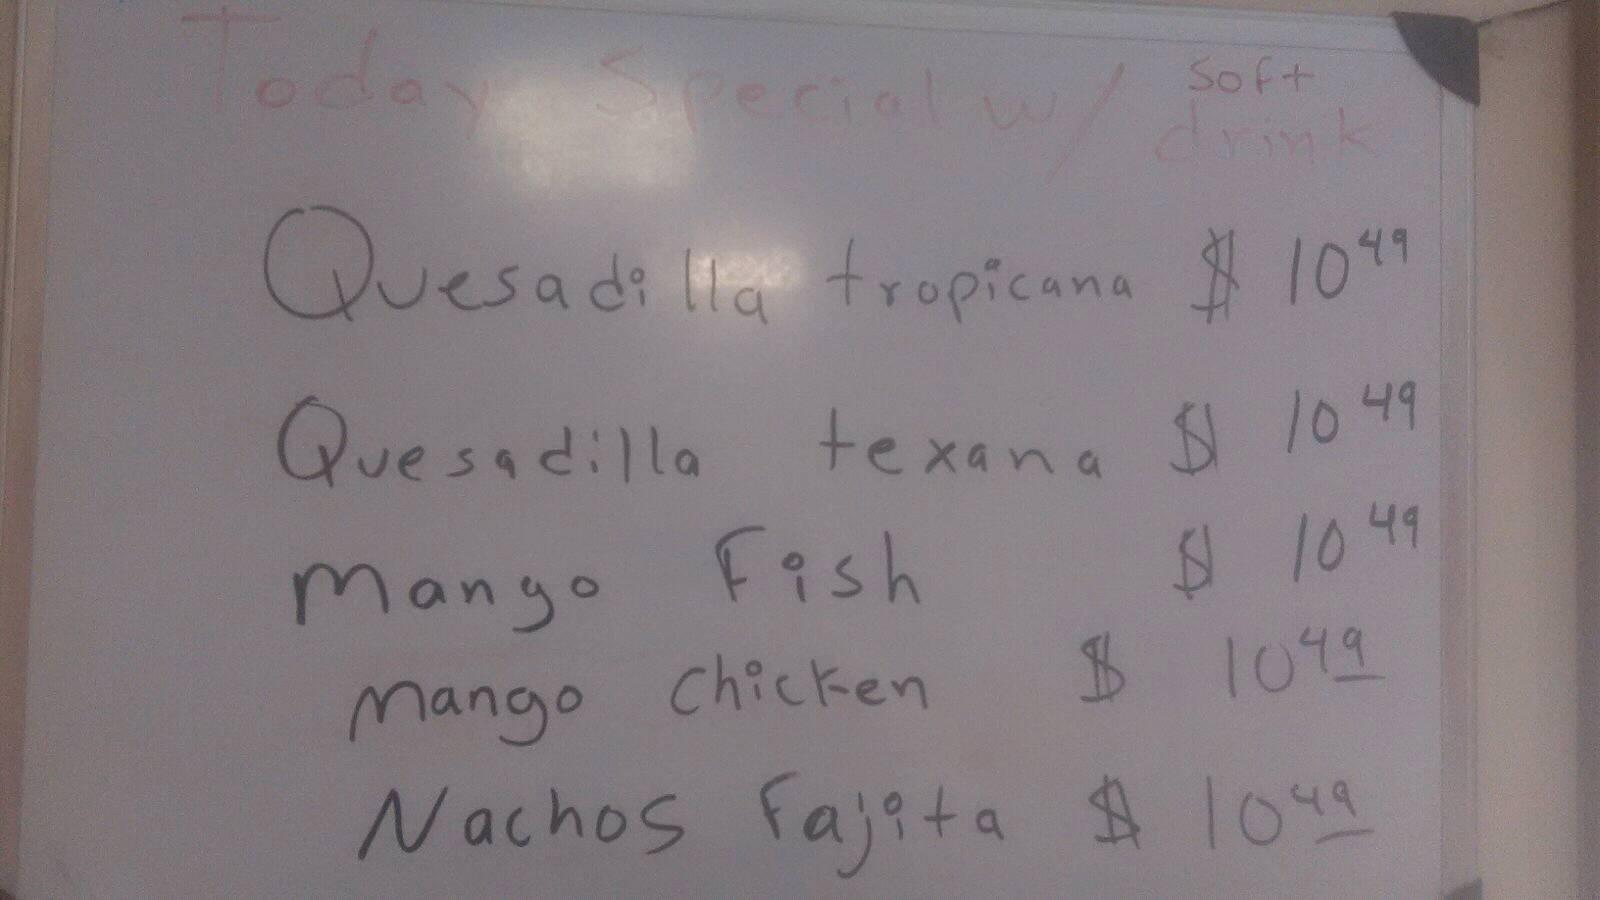 Today Special w/ soft drink
Quesadilla tropicana $ 10 49
Quesadilla texana $ 10 49
Mango Fish $ 10 49
Mango chicken $ 10 49
Nachos Fajita $ 10 49